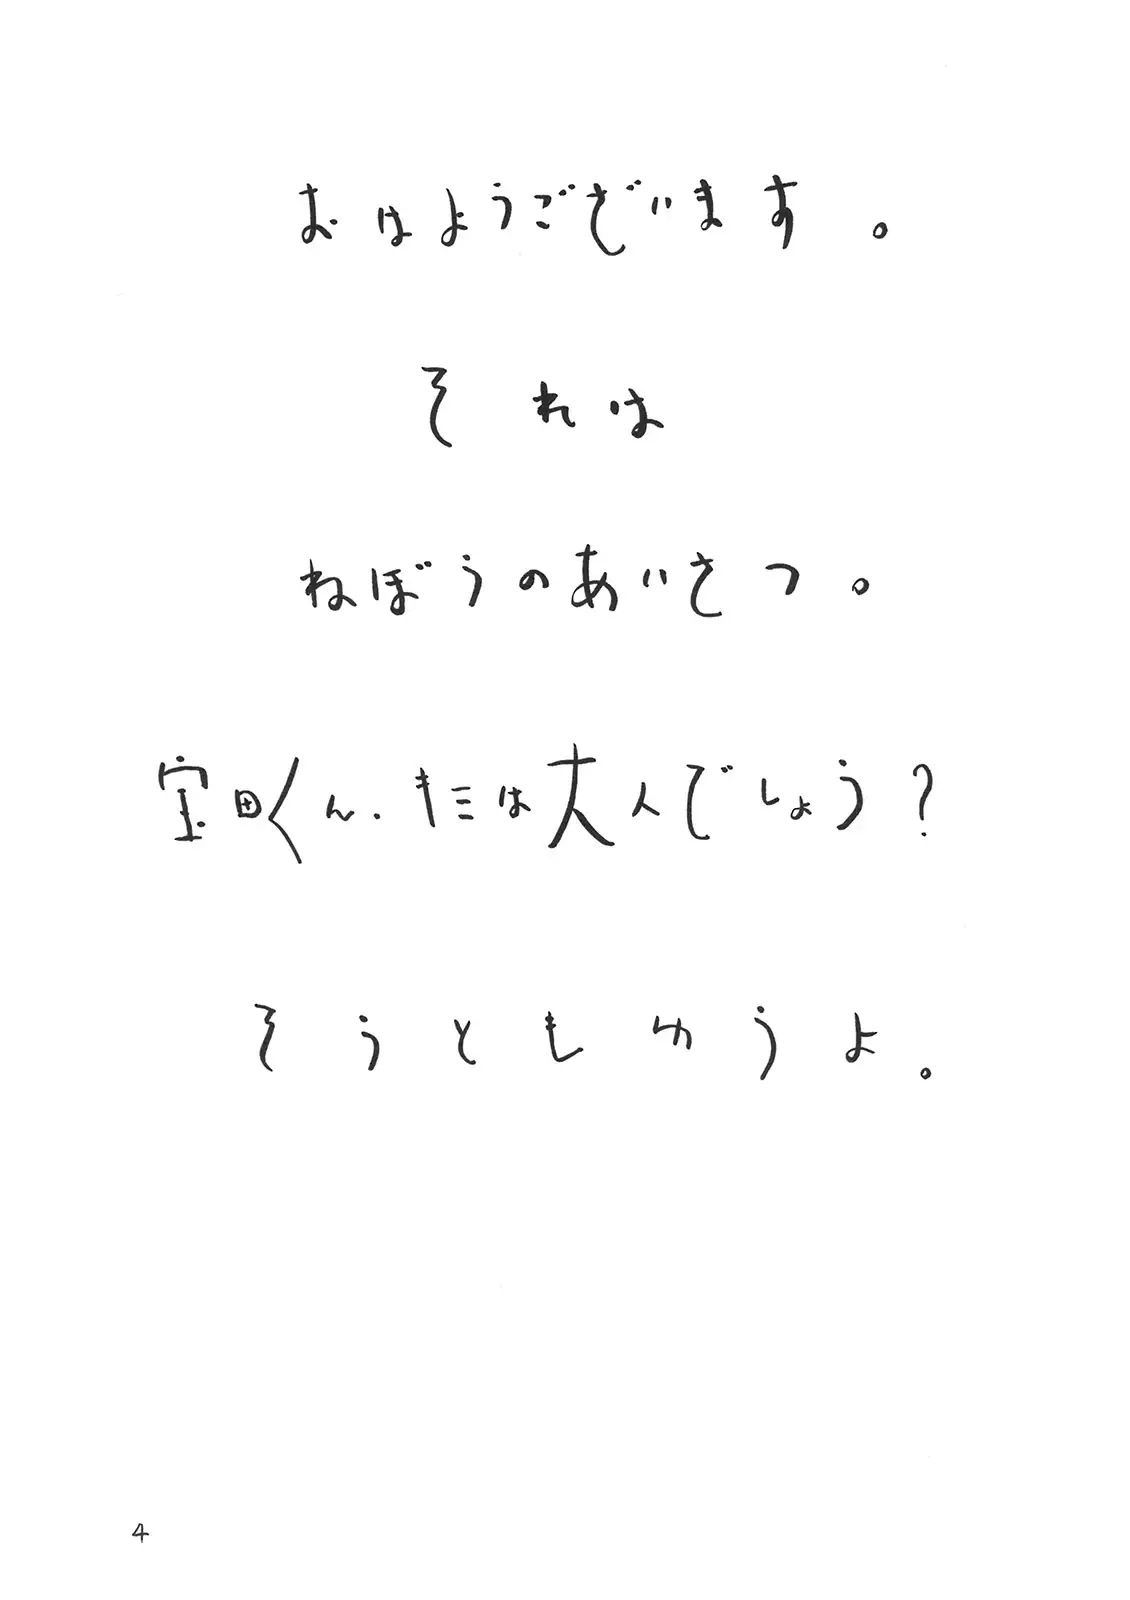 おはようございます。
それは
ねぼうのあいさつ。
宝田くん、キミは大人でしょう?
そうともゆうよ。
4